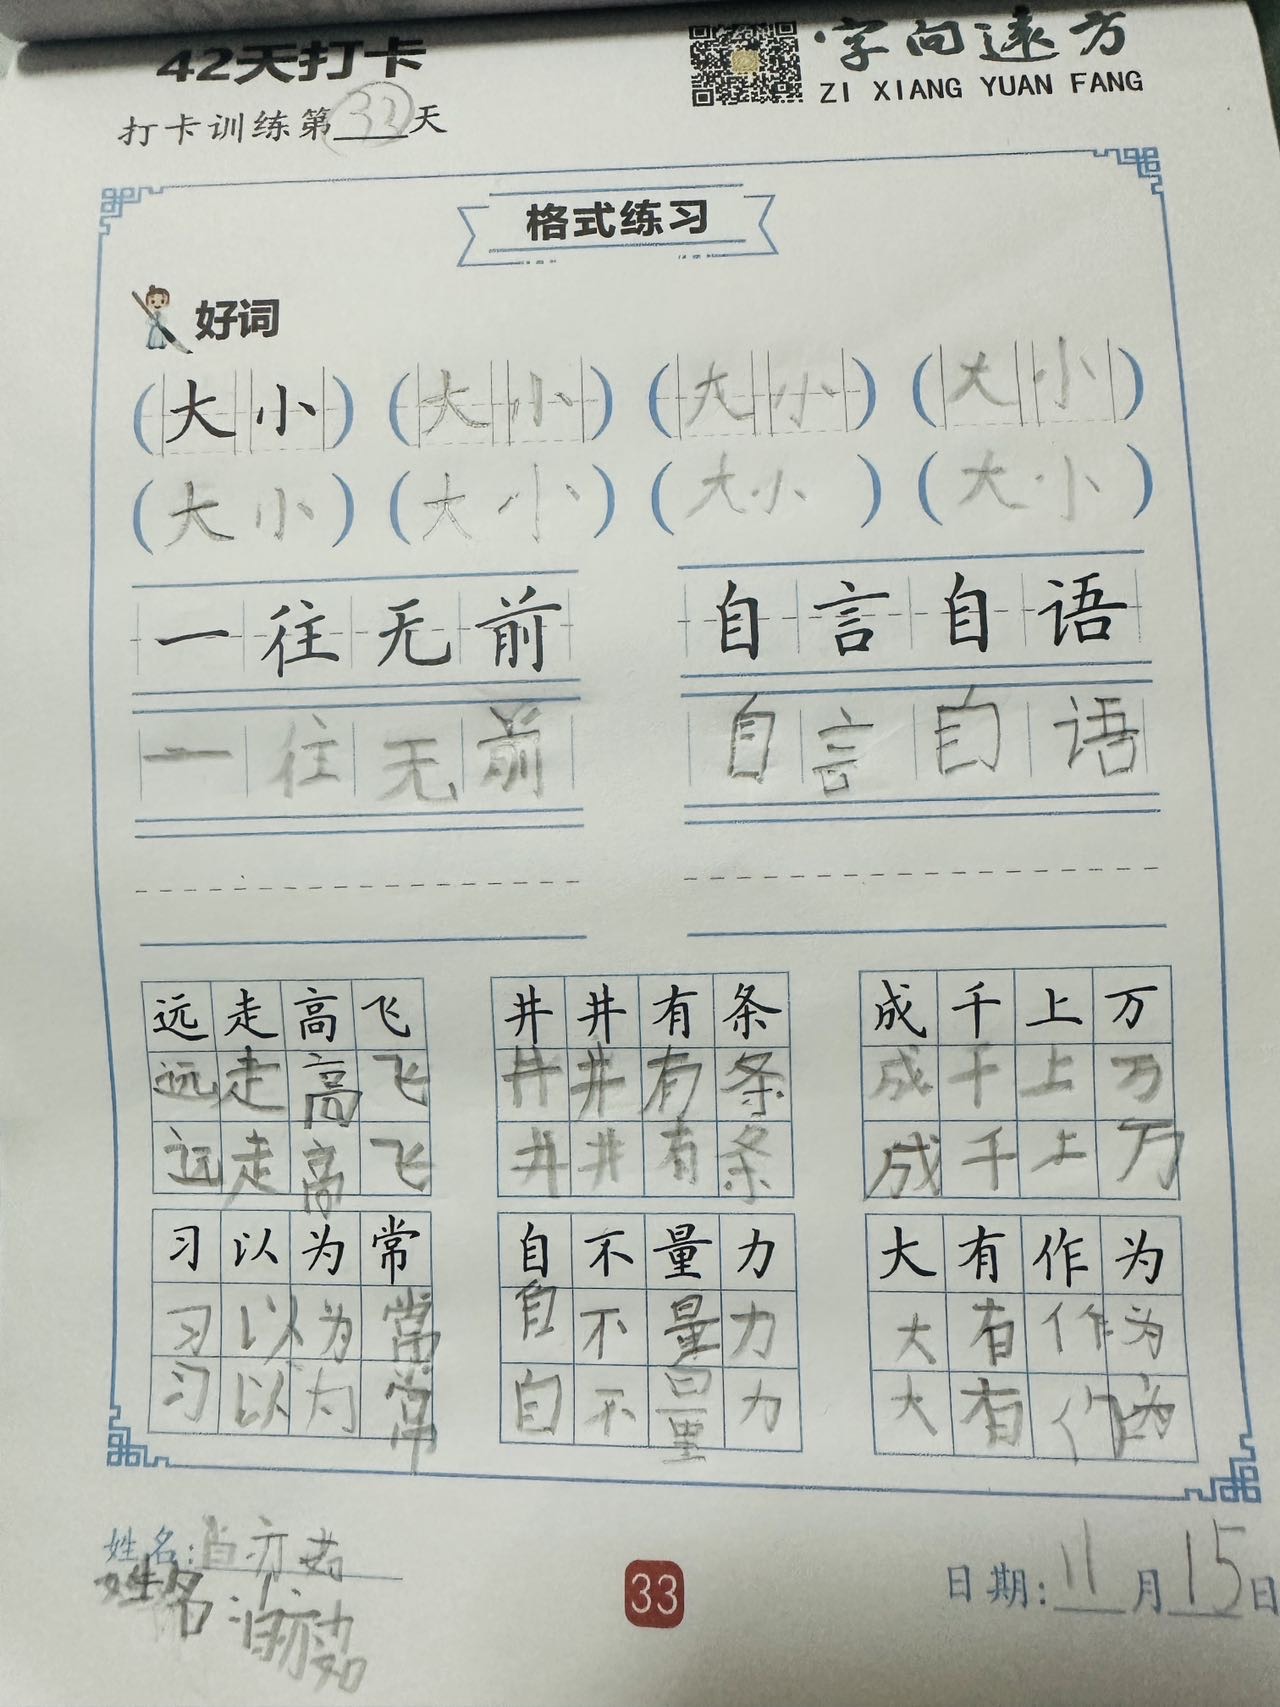 42天打卡
字向远方
ZI XIANG YUAN FANG
打卡训练第33天
格式练习
好词
(大小) (大小) (大小) (大小)
(大小) (大小) (大小) (大小)
一往无前 自言自语
一往无前 自言自语
远走高飞 井井有条 成千上万
远走高飞 井井有条 成千上万
远走高飞 井井有条 成千上万
习以为常 自不量力 大有作为
习以为常 自不量力 大有作为
习以为常 自不量力 大有作为
姓名:
33
日期:11月15日
姓名: